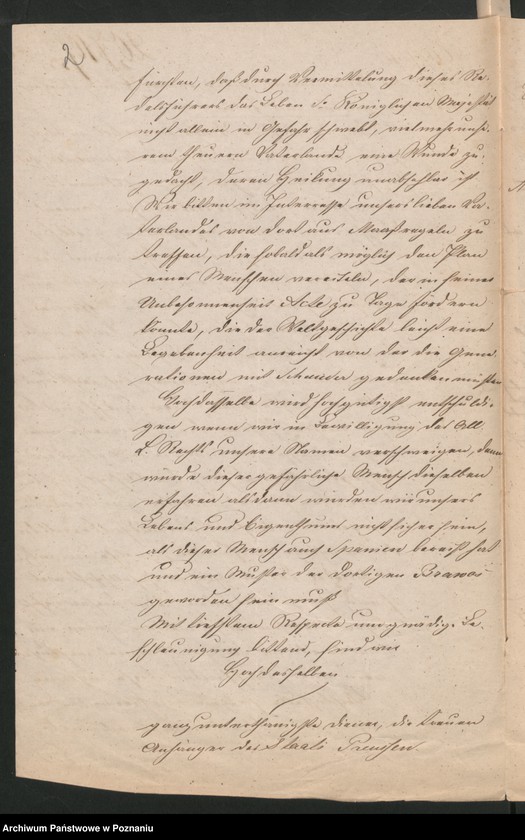 2
fürchten, daß durch Vermittelung dieses Rä-
delsführers das Leben Sr Königlichen Majestät
nicht allein in Gefahr schwebt, vielmehr unse-
rem theuern Vaterlande eine Wunde zu-
gedacht, deren Heilung unabsehbar ist
Wir bitten im Interesse unseres lieben Va-
terlandes von dort aus Maaßregeln zu
treffen, die sobald als möglich den Plan
eines Menschen vereiteln, der in seiner
Unbesonnenheit Acte zu Tage fördern
könnte, die der Weltgeschichte leicht eine
Begebenheit anreiht von der die Gene-
rationen mit Schauder gedenken müßten
Hochdasselbe wird hochgütigst entschuldi-
gen wenn wir in Bewilligung des All
L. Rechts unsere Namen verschweigen, denn
würde dieser gefährliche Mensch dieselben
erfahren alsdann würden wir unsers
Lebens und Eigenthums nicht sicher sein,
als dieser Mensch auch Spanien bereist hat
und ein Muster der dortigen Brawos
geworden sein muß
Mit tiefstem Respecte um gnädige Be-
schleunigung bittend, sind wir
Hochderselben
ganz unterthänigste diener, die treuen
Anhänger des Staats Preussen.
Archiwum Państwowe w Poznaniu